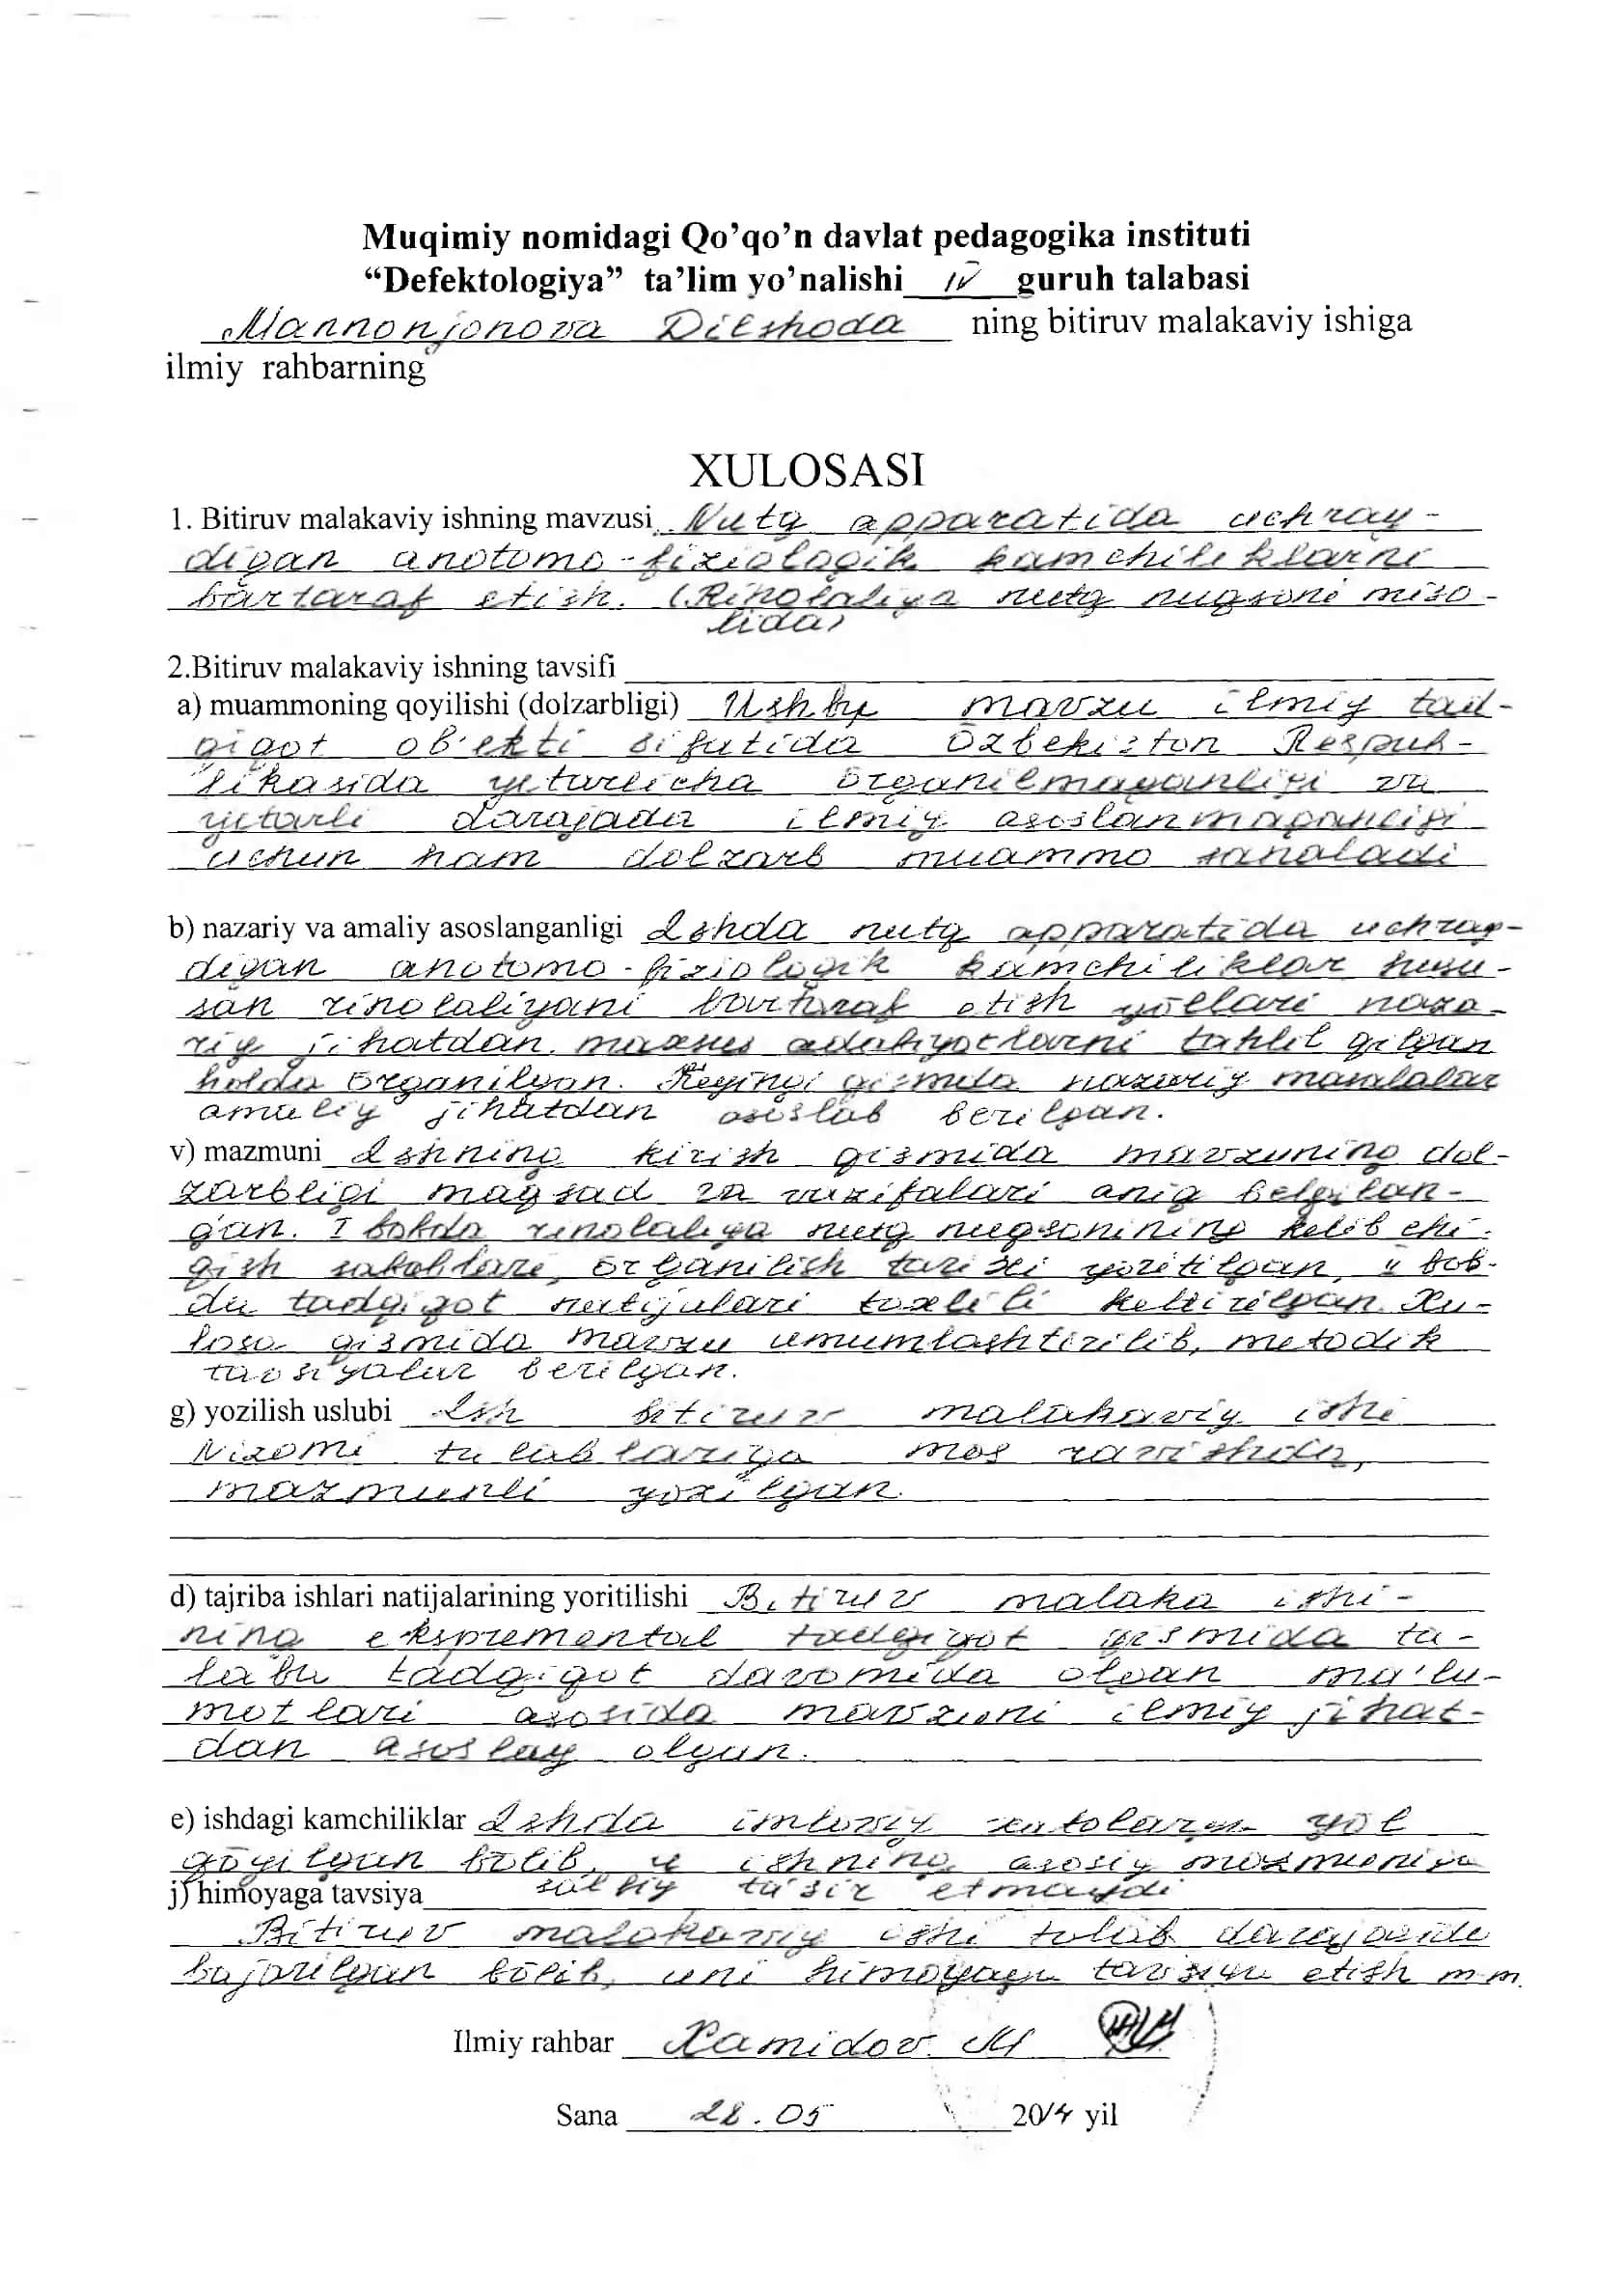 Muqimiy nomidagi Qo’qo’n davlat pedagogika instituti
“Defektologiya” ta’lim yo’nalishi IV guruh talabasi
Mannonjonova Dilshoda ning bitiruv malakaviy ishiga
ilmiy rahbarning
XULOSASI
1. Bitiruv malakaviy ishning mavzusi Nutq apparatida uchray-
digan anotomo-fiziologik kamchiliklarni
bartaraf etish. (Rinolaliya nutq nuqsoni miso-
lida)
2.Bitiruv malakaviy ishning tavsifi
a) muammoning qoyilishi (dolzarbligi) Ushbu mavzu ilmiy tad-
qiqot ob'ekti sifatida Ōzbekiston Respub-
likasida yetarlicha ōrganilmaganligi va
yetarli darajada ilmiy asoslanmaganligi
uchun ham dolzarb muammo sanaladi
b) nazariy va amaliy asoslanganligi Ishda nutq apparatida uchray-
digan anotomo-fiziologik kamchiliklar husu-
san rinolaliyani bartaraf etish yōllari naza-
riy jihatdan maxsus adabiyotlarni tahlil qilgan
holda ōrganilgan. Keyingi qismda nazariy manbalar
amaliy jihatdan asoslab berilgan.
v) mazmuni Ishning kirish qismida mavzuning dol-
zarbligi maqsad va vazifalari aniq belgilan-
gan. I bobda rinolaliya nutq nuqsonining kelib chi-
qish sabablari, ōrganilish tarixi yoritilgan, II bob-
da tadqiqot natijalari taxlili keltirilgan. Xu-
losa qismida mavzu umumlashtirilib, metodik
tavsiyalar berilgan.
g) yozilish uslubi Ish bitiruv malakaviy ishi
Nizomi talablariga mos ravishda,
mazmunli yozilgan.
d) tajriba ishlari natijalarining yoritilishi Bitiruv malaka ishi-
ning ekspremental tadqiqot qismida ta-
laba tadqiqot davomida olgan ma'lu-
motlari asosida mavzuni ilmiy jihat-
dan asoslay olgan.
e) ishdagi kamchiliklar Ishda imloviy xatolarga yōl
qōyilgan bōlib, u ishning asosiy mazmuniga
salbiy ta'sir etmaydi
j) himoyaga tavsiya
Bitiruv malakaviy ishi talab darajasida
bajarilgan bōlib, uni himoyaga tavsiya etish m-m.
Ilmiy rahbar Xamidov. M
Sana 28.05 2014 yil